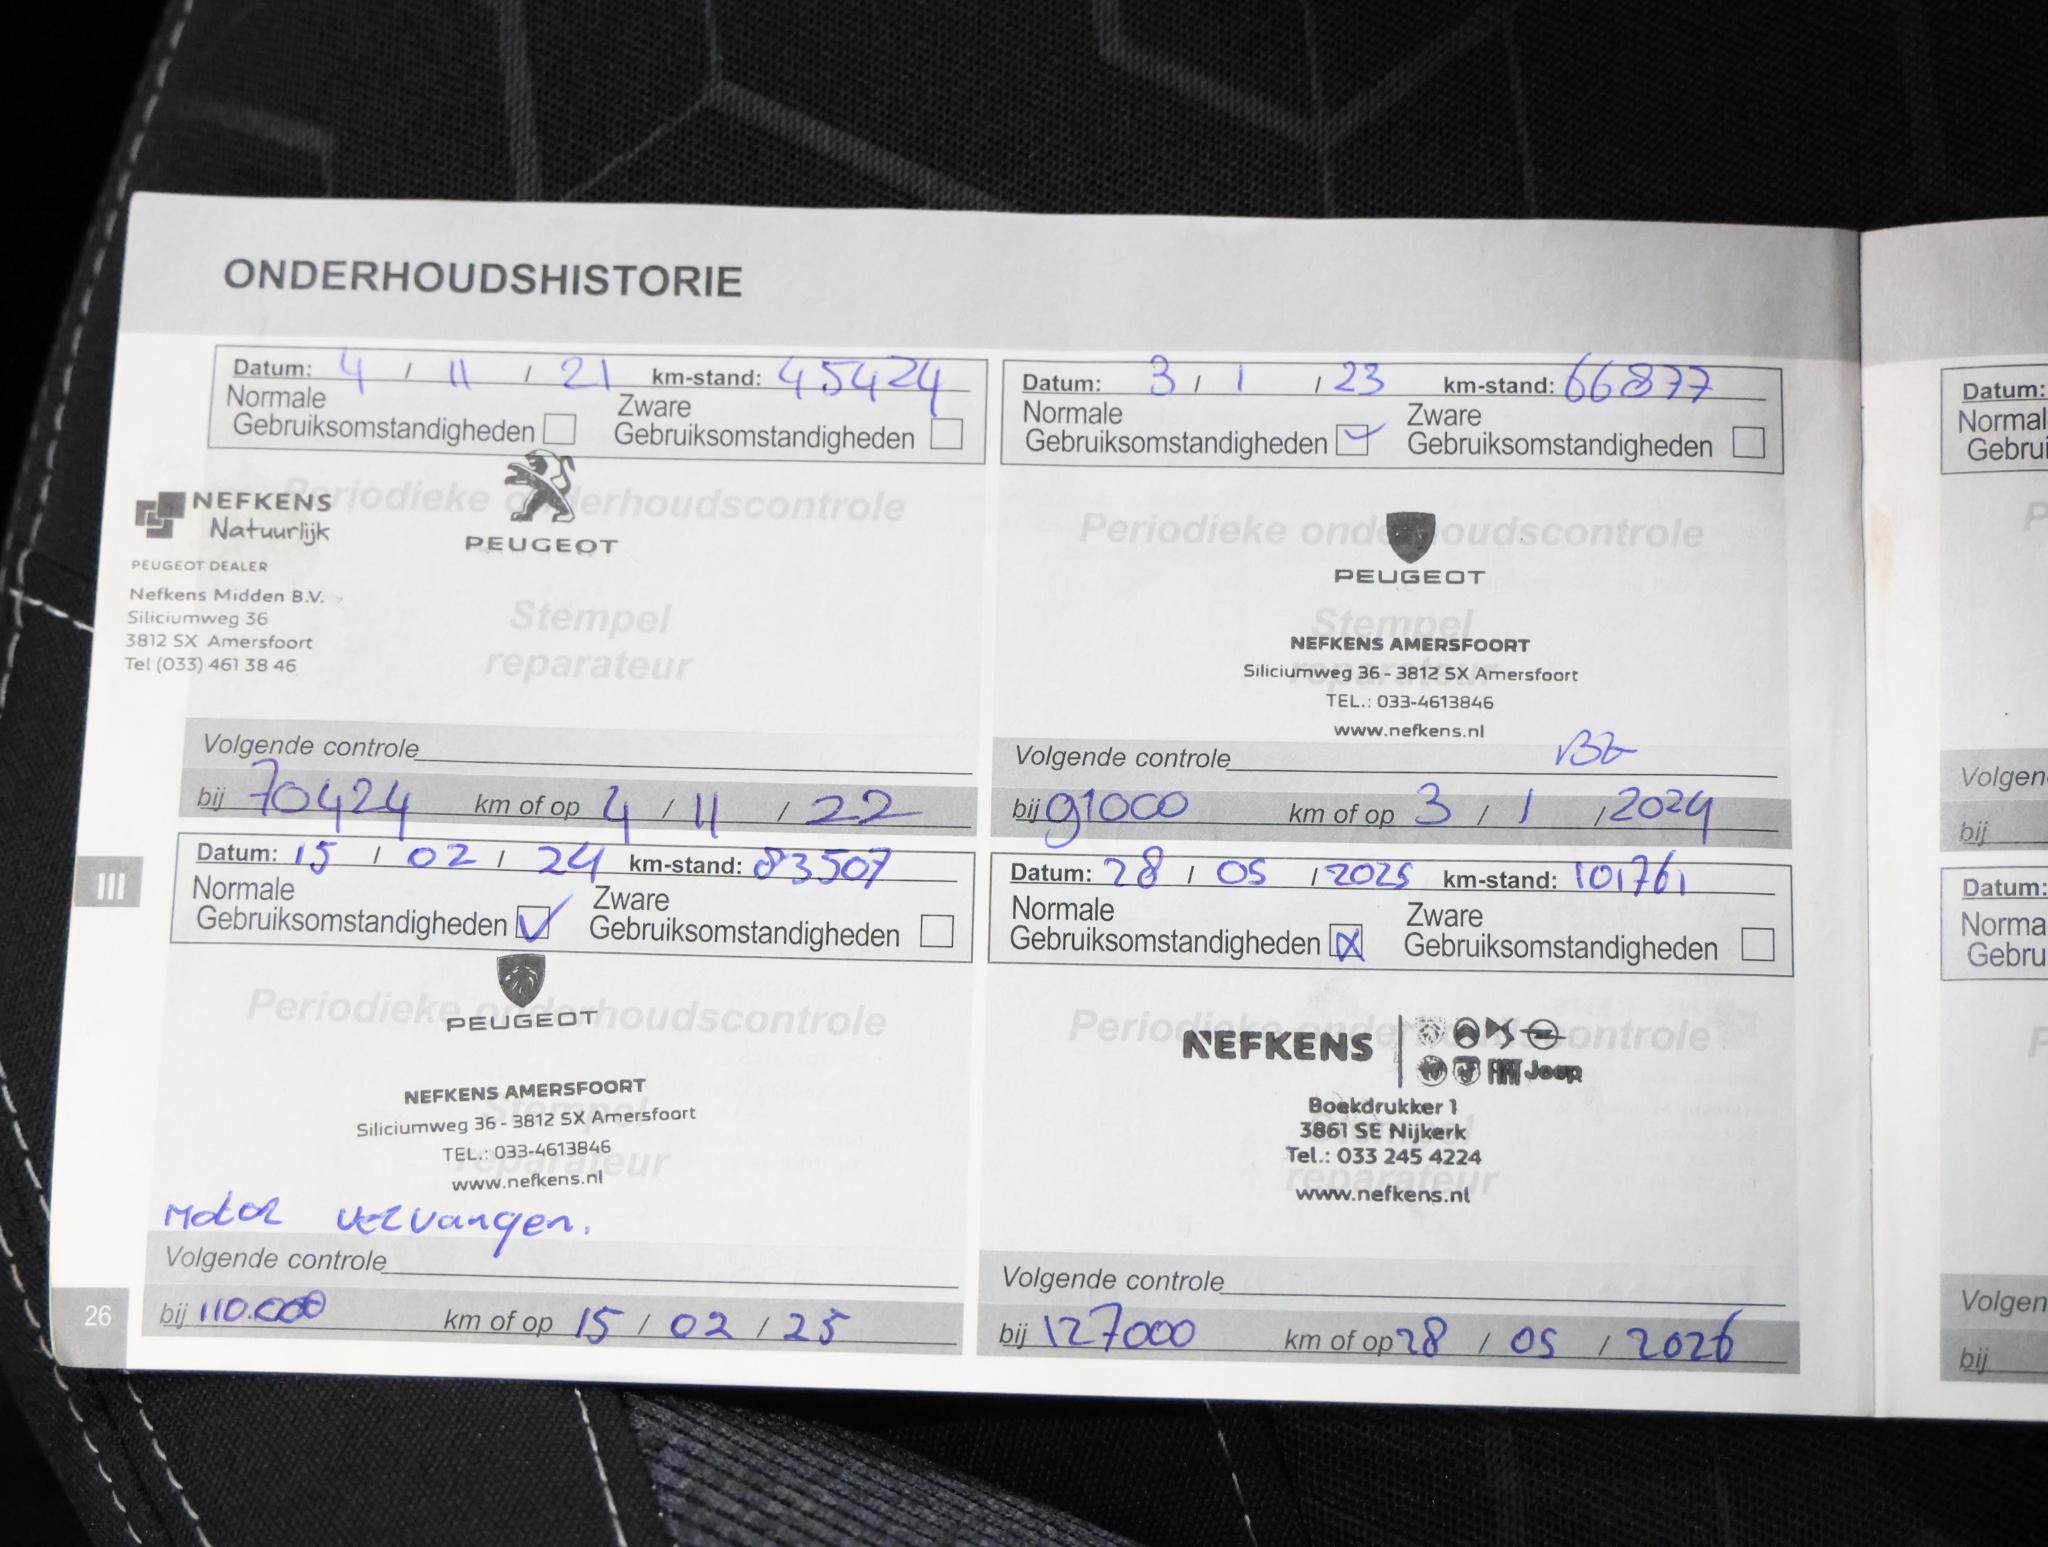 ONDERHOUDSHISTORIE
Datum: 4 / 11 / 21 km-stand: 45424
Normale
Gebruiksomstandigheden
Zware
Gebruiksomstandigheden
Periodieke onderhoudscontrole
NEFKENS
Natuurlijk
PEUGEOT
PEUGEOT DEALER
Nefkens Midden B.V.
Siliciumweg 36
3812 SX Amersfoort
Tel (033) 461 38 46
Stempel
reparateur
Volgende controle
bij 70424 km of op 4 / 11 / 22
Datum: 3 / 1 / 23 km-stand: 66877
Normale
Gebruiksomstandigheden
Zware
Gebruiksomstandigheden
Periodieke onderhoudscontrole
PEUGEOT
Stempel
reparateur
NEFKENS AMERSFOORT
Siliciumweg 36 - 3812 SX Amersfoort
TEL.: 033-4613846
www.nefkens.nl
Volgende controle
bij 91000 km of op 3 / 1 / 2024
III
Datum: 15 / 02 / 24 km-stand: 83507
Normale
Gebruiksomstandigheden
Zware
Gebruiksomstandigheden
Periodieke onderhoudscontrole
PEUGEOT
Stempel
reparateur
NEFKENS AMERSFOORT
Siliciumweg 36 - 3812 SX Amersfoort
TEL.: 033-4613846
www.nefkens.nl
Motor vervangen.
Volgende controle
bij 110.000 km of op 15 / 02 / 25
Datum: 28 / 05 / 2025 km-stand: 101761
Normale
Gebruiksomstandigheden
Zware
Gebruiksomstandigheden
Periodieke onderhoudscontrole
NEFKENS
FIAT Jeep
Stempel
reparateur
Boekdrukker 1
3861 SE Nijkerk
Tel.: 033 245 4224
www.nefkens.nl
Volgende controle
bij 127000 km of op 28 / 05 / 2026
26
Datum:
Normal
Gebrui
P
Volgen
bij
Datum:
Norma
Gebru
P
Volgen
bij